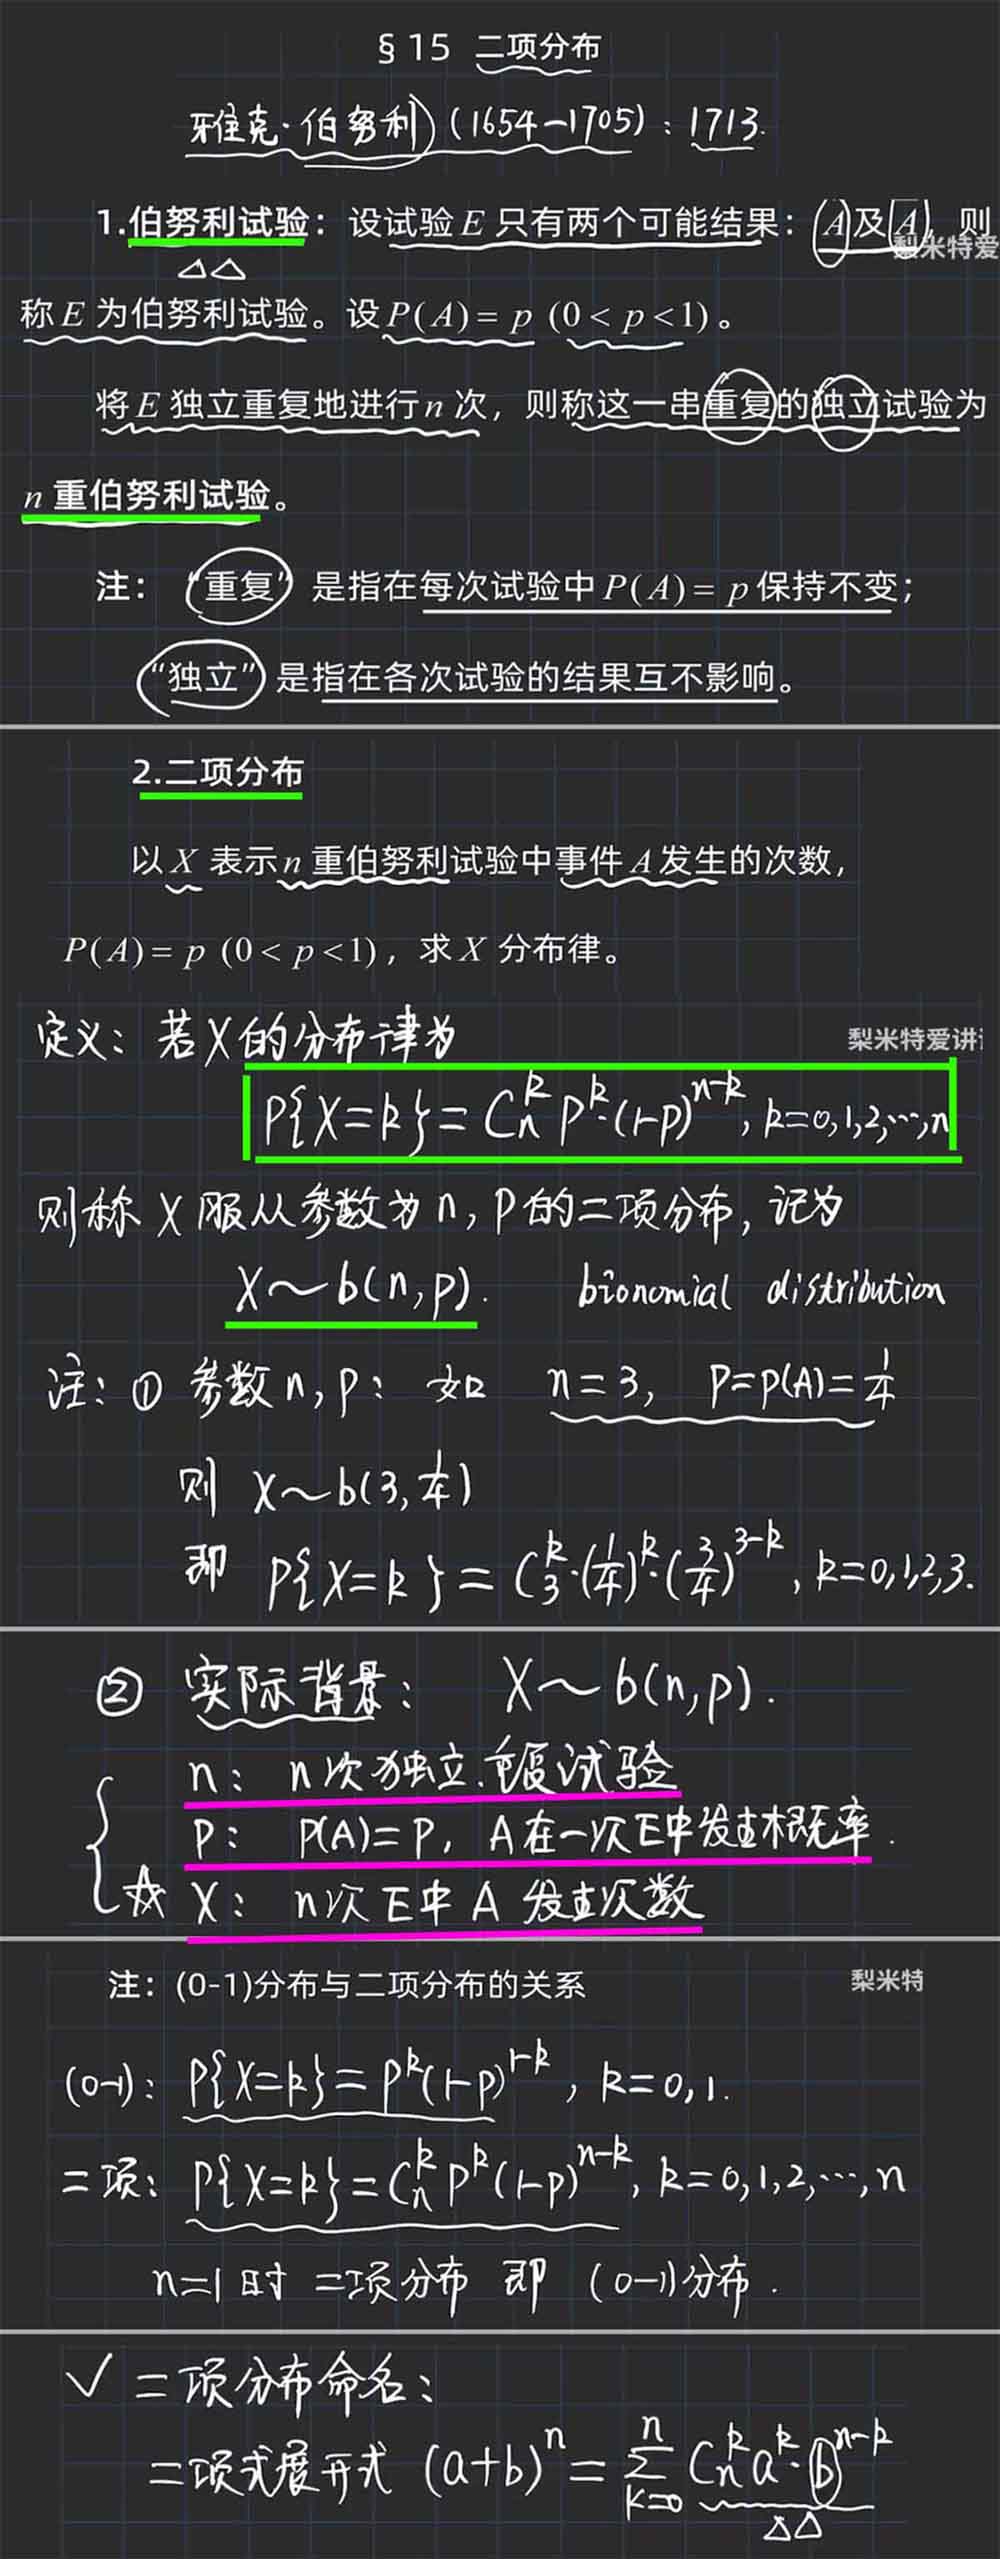 §15 二项分布
雅克·伯努利 (1654-1705)：1713.
1.伯努利试验：设试验 E 只有两个可能结果：A及A̅，则
梨米特爱
称 E 为伯努利试验。设 P(A) = p (0 < p < 1)。
将 E 独立重复地进行 n 次，则称这一串重复的独立试验为
n 重伯努利试验。
注："重复" 是指在每次试验中 P(A) = p 保持不变；
"独立" 是指在各次试验的结果互不影响。
2.二项分布
以 X 表示 n 重伯努利试验中事件 A 发生的次数，
P(A) = p (0 < p < 1)，求 X 分布律。
定义：若X的分布律为
梨米特爱讲
P{X=k} = Cₙᵏ pᵏ·(1-p)ⁿ⁻ᵏ, k=0,1,2,…,n
则称 X 服从参数为 n, p 的二项分布, 记为
X～b(n,p). bionomial distribution
注：① 参数 n, p：如 n=3, P=P(A)=1/4
则 X～b(3, 1/4)
即 P{X=k} = C₃ᵏ·(1/4)ᵏ·(3/4)³⁻ᵏ, k=0,1,2,3.
② 实际背景： X～b(n,p).
n： n次独立.重复试验
P： P(A)=P, A在一次E中发生概率.
☆ X： n次E中 A 发生次数
注：(0-1)分布与二项分布的关系
梨米特
(0-1)： P{X=k} = pᵏ(1-p)¹⁻ᵏ, k=0,1.
二项： P{X=k} = Cₙᵏ pᵏ(1-p)ⁿ⁻ᵏ, k=0,1,2,…,n
n=1时 二项分布 即 (0-1)分布.
✓ 二项分布命名：
二项式展开式 (a+b)ⁿ = ∑ₖ₌₀ⁿ Cₙᵏ aᵏ·bⁿ⁻ᵏ